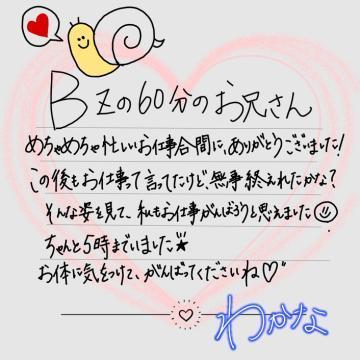 Bzの60分のお兄さん
めちゃめちゃ忙しいお仕事合間に、ありがとうございました!
この後もお仕事て言ってたけど、無事終えれたかな?
そんな姿を見て、私もお仕事がんばろうと思えました☺
ちゃんと5時までいました★
お体に気をつけて、がんばってくださいね♡
わかな